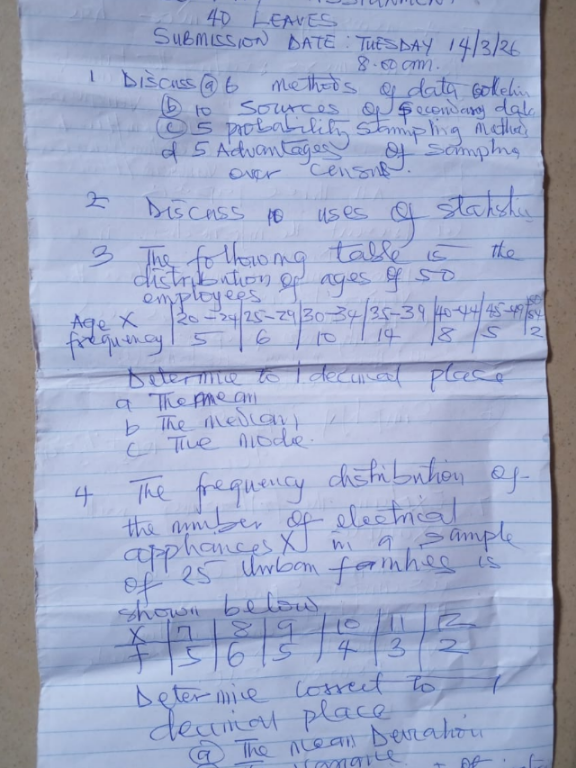 ASSIGNMENT
40 LEAVES
SUBMISSION DATE: TUESDAY 14/3/26
8.00am.
1 Discuss (a) 6 methods of data
(b) 10 Sources of Secondary data
(c) 5 probability Sampling Method
d 5 Advantages of Sampling
over Census.
2 Discuss 10 uses of
3 The following table is the
distribution of ages of 50
employees
Age X | 20-24 | 25-29 | 30-34 | 35-39 | 40-44 | 45-49 | 50-54
frequency | 5 | 6 | 10 | 14 | 8 | 5 | 2
Determine to 1 decimal place
a The mean
b The median
c The mode.
4 The frequency distribution of
the number of electrical
appliances X in a sample
of 25 Urban families is
shown below
X | 7 | 8 | 9 | 10 | 11 | 12
f | 5 | 6 | 5 | 4 | 3 | 2
Determine correct to 1
decimal place
(a) The mean Deviation